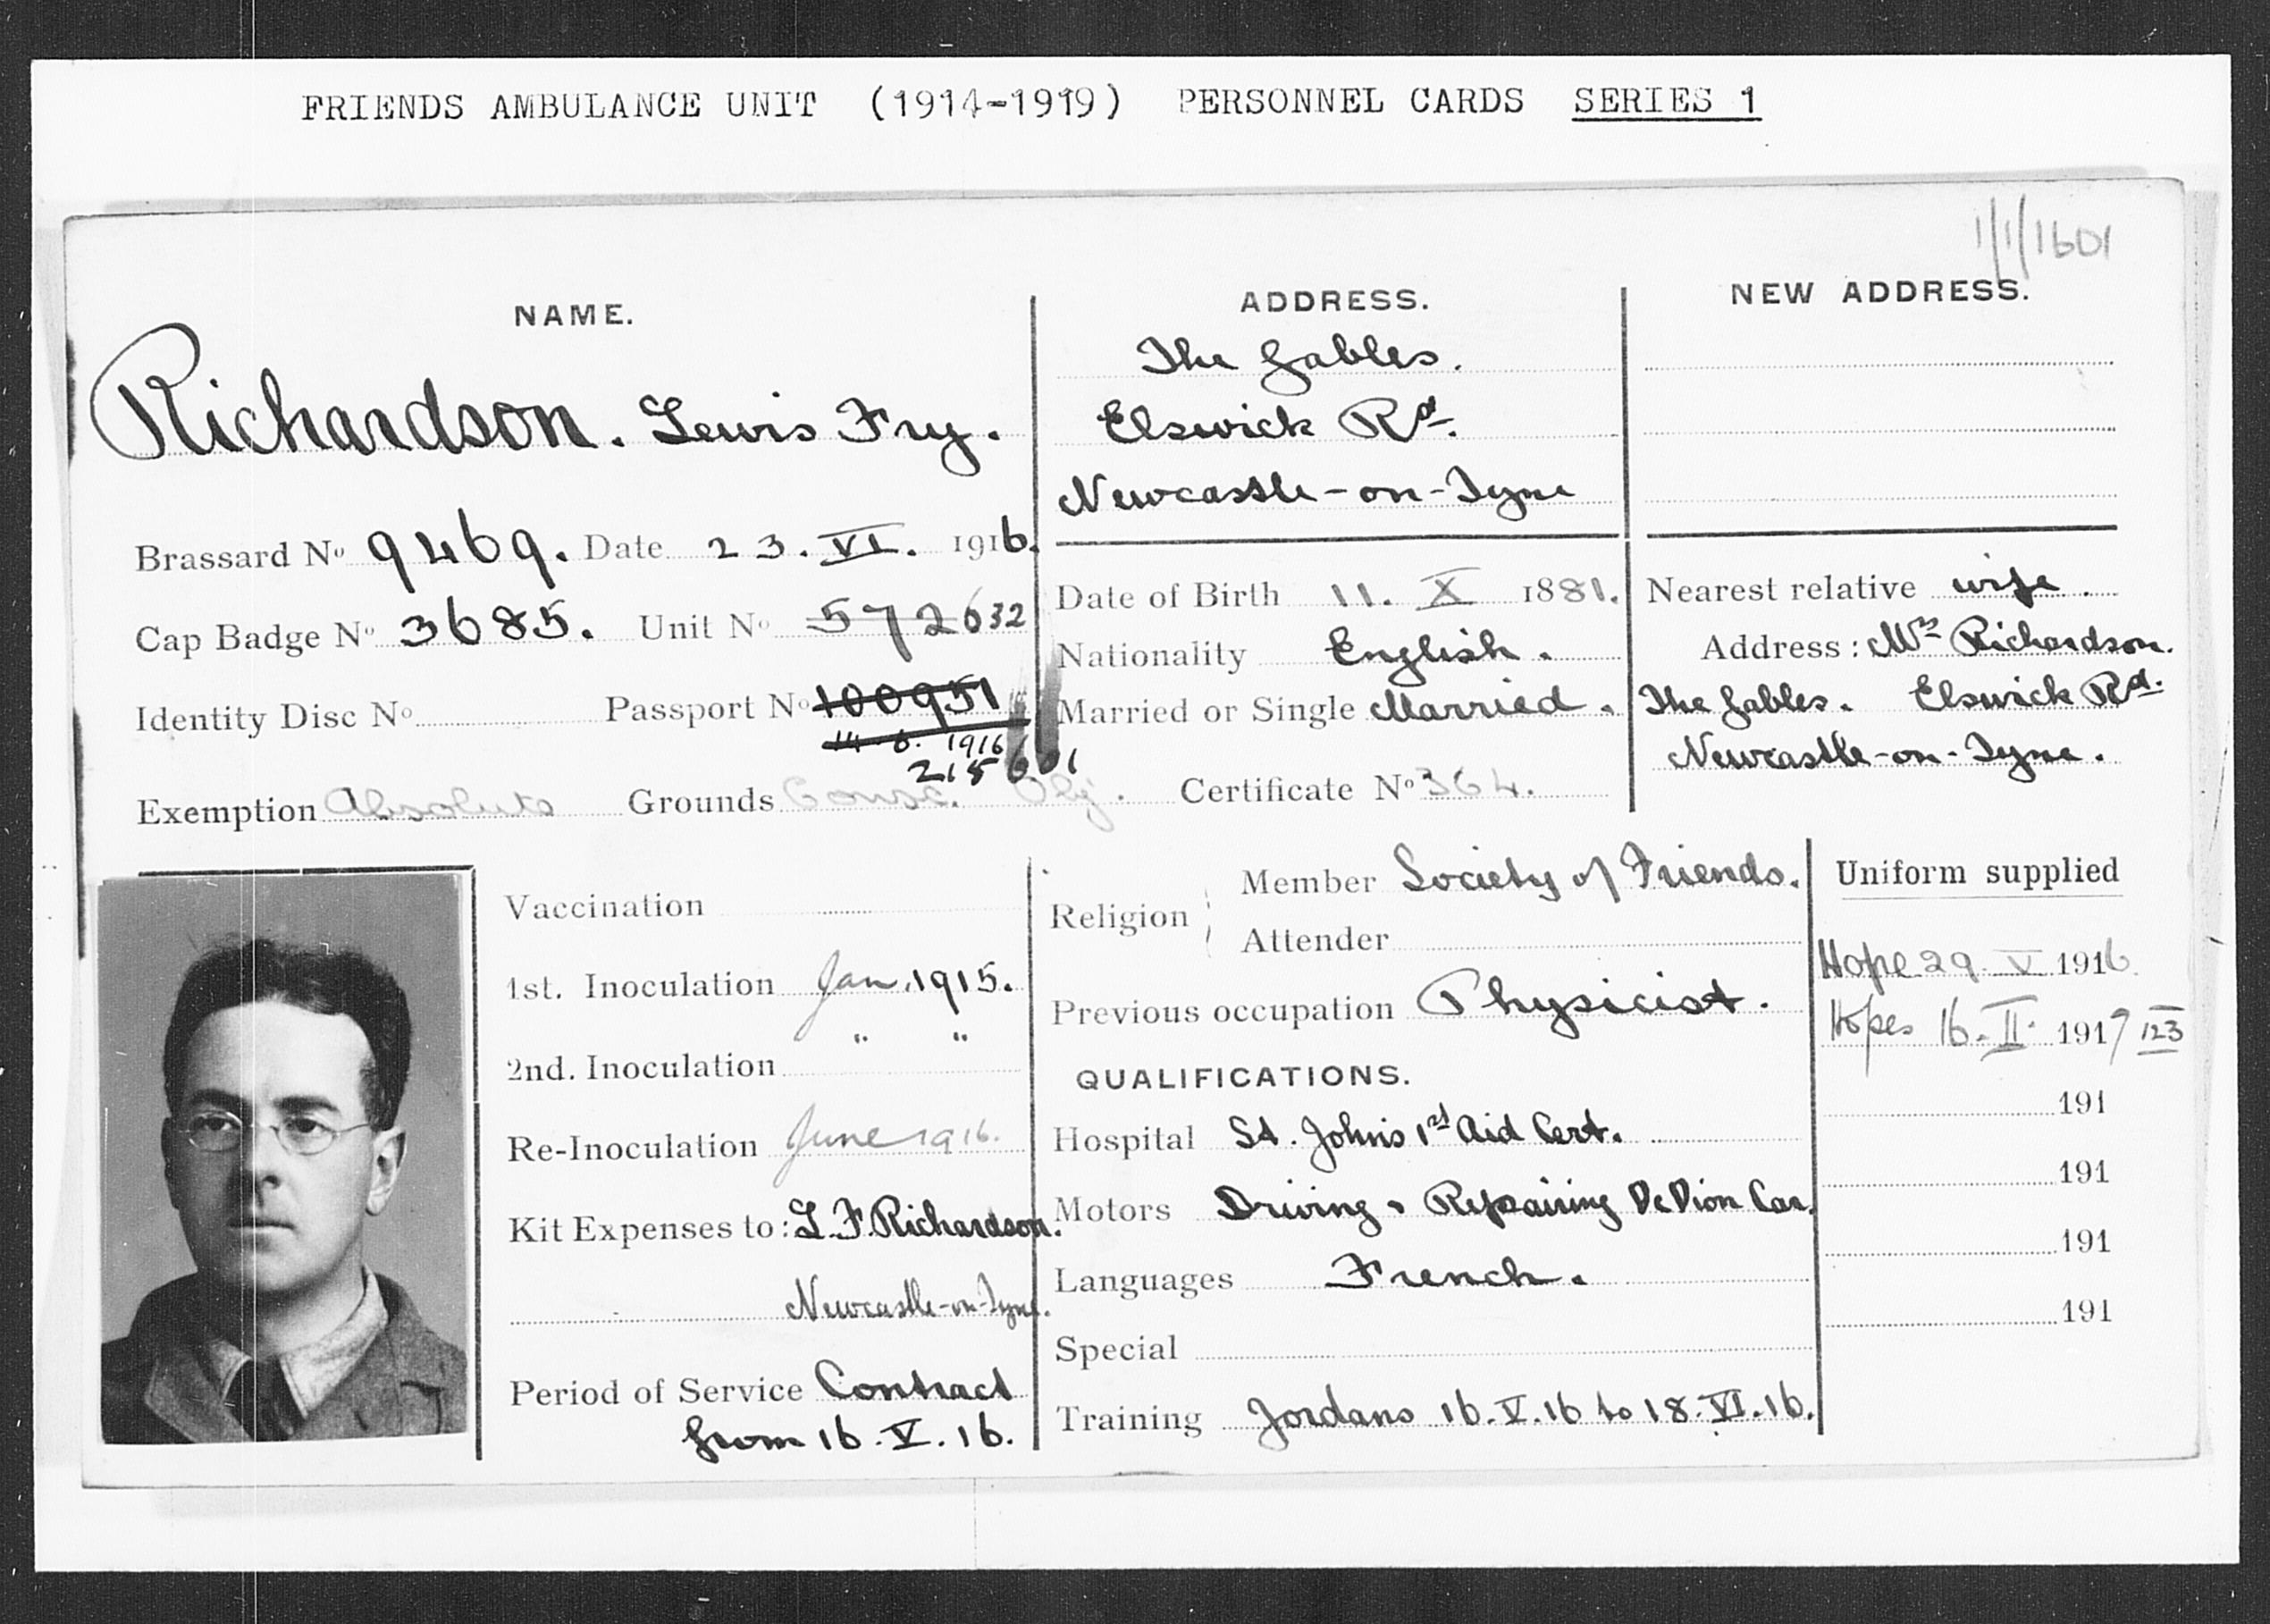 FRIENDS AMBULANCE UNIT (1914-1919) PERSONNEL CARDS SERIES 1
1/1/1601
NAME.
Richardson. Lewis Fry.
Brassard No 9469. Date 23. VI. 1916.
Cap Badge No 3685. Unit No 572 632
Identity Disc No Passport No 100951
14.6.1916
215601
Exemption Absolute Grounds Consc. Obj. Certificate No 364.
ADDRESS.
The Gables.
Elswick Rd.
Newcastle-on-Tyne
Date of Birth 11. X 1881.
Nationality English.
Married or Single Married.
NEW ADDRESS.
Nearest relative wife.
Address: Mrs Richardson.
The Gables. Elswick Rd.
Newcastle-on-Tyne.
Vaccination
1st. Inoculation Jan. 1915.
2nd. Inoculation " "
Re-Inoculation June 1916.
Kit Expenses to: L. F. Richardson.
Newcastle-on-Tyne.
Period of Service Contract
from 16.V.16.
Religion Member Society of Friends.
Attender
Previous occupation Physicist.
QUALIFICATIONS.
Hospital St. John's 1st Aid Cert.
Motors Driving & Repairing DeDion Car.
Languages French.
Special
Training Jordans 16.V.16 to 18.VI.16.
Uniform supplied
Hope 29. V 1916
Hopes 16.II. 1917 123
191
191
191
191